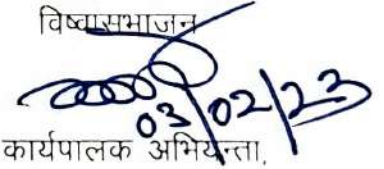 विष्वासभाजन
03/02/23
कार्यपालक अभियन्ता,